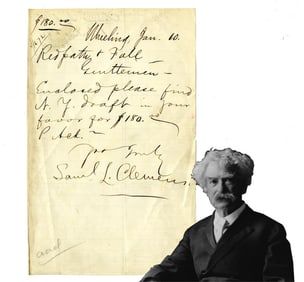 $180.00
1872
Wheeling, Jan. 10.
Redpath & Fall
Gentlemen —
Enclosed please find
N. Y. draft in your
favor for $180.—
& Yrs Truly
Saml L. Clemens.